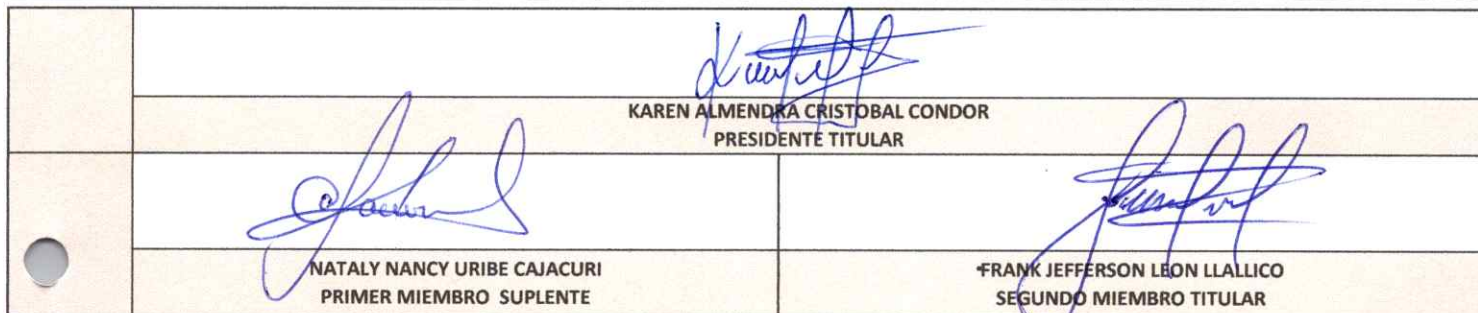 KAREN ALMENDRA CRISTOBAL CONDOR
PRESIDENTE TITULAR
NATALY NANCY URIBE CAJACURI
PRIMER MIEMBRO SUPLENTE
FRANK JEFFERSON LEON LLALLICO
SEGUNDO MIEMBRO TITULAR